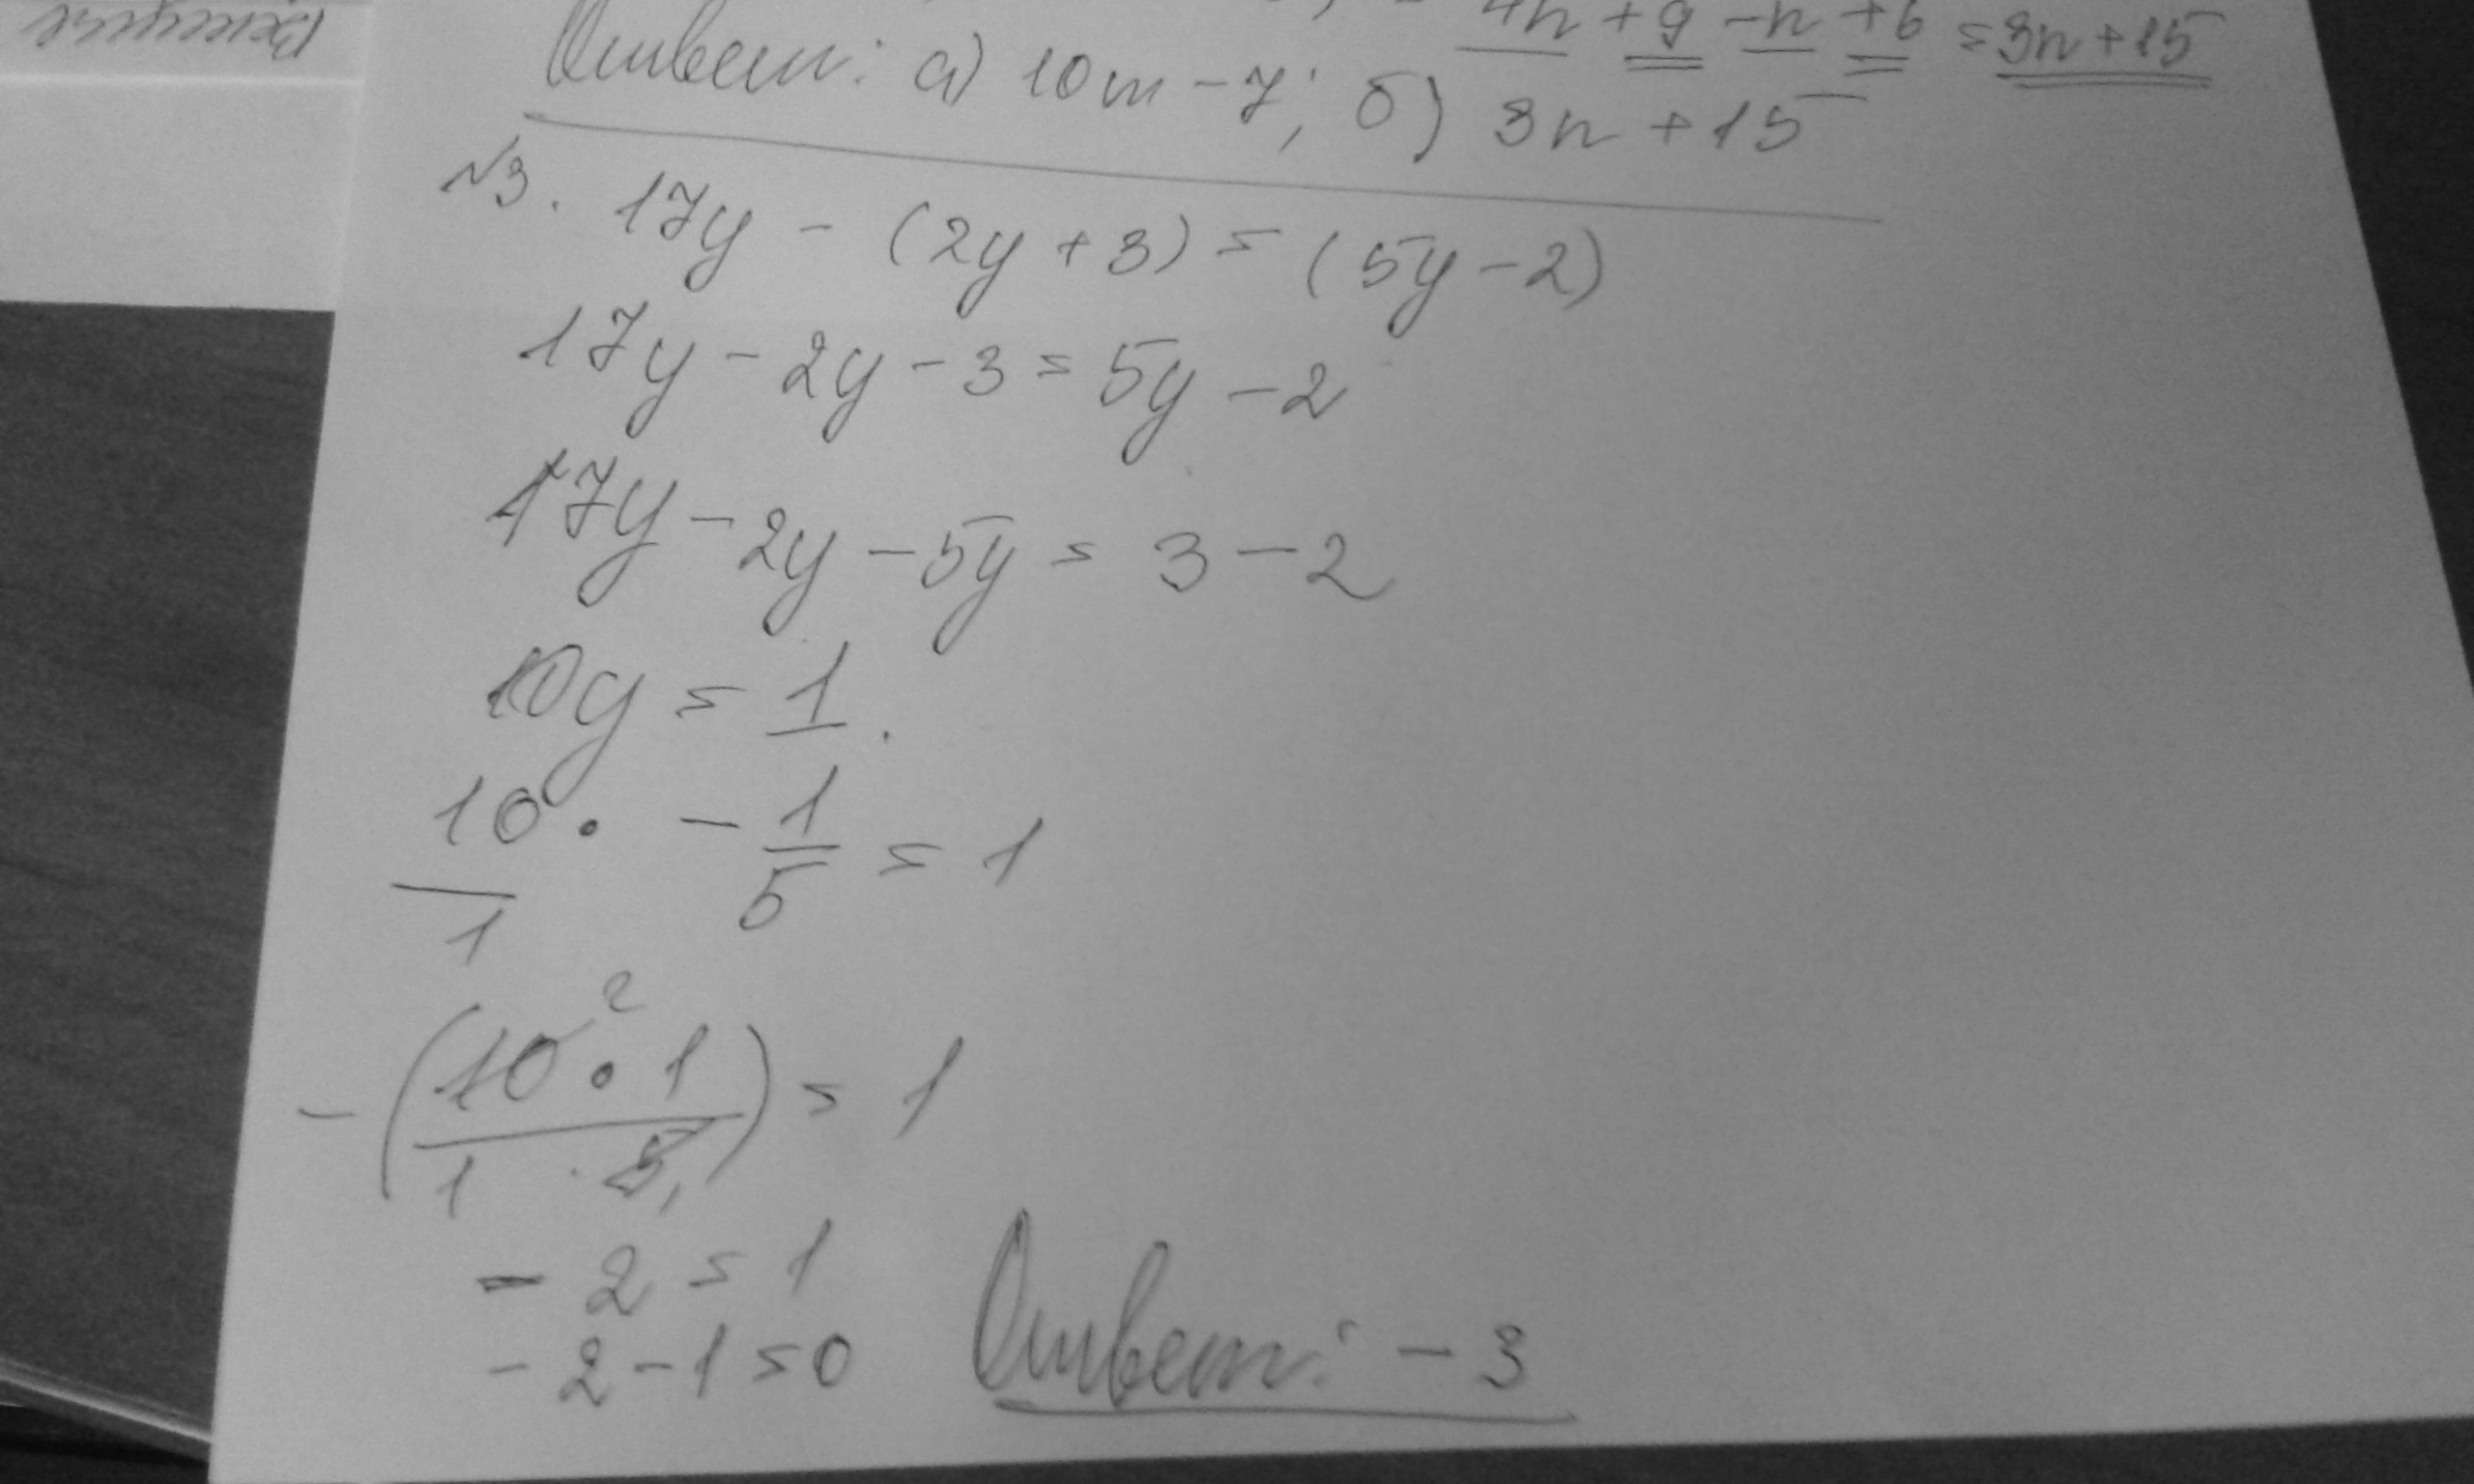 4n + 9 - n + 6 = 3n + 15
Ответ: а) 10m - 7; б) 3n + 15
№3. 17y - (2y + 3) = (5y - 2)
17y - 2y - 3 = 5y - 2
17y - 2y - 5y = 3 - 2
10y = 1.
10/1 · - 1/5 = 1
- (10² · 1 / 1 · 5₁) = 1
- 2 = 1
- 2 - 1 = 0 Ответ: - 3